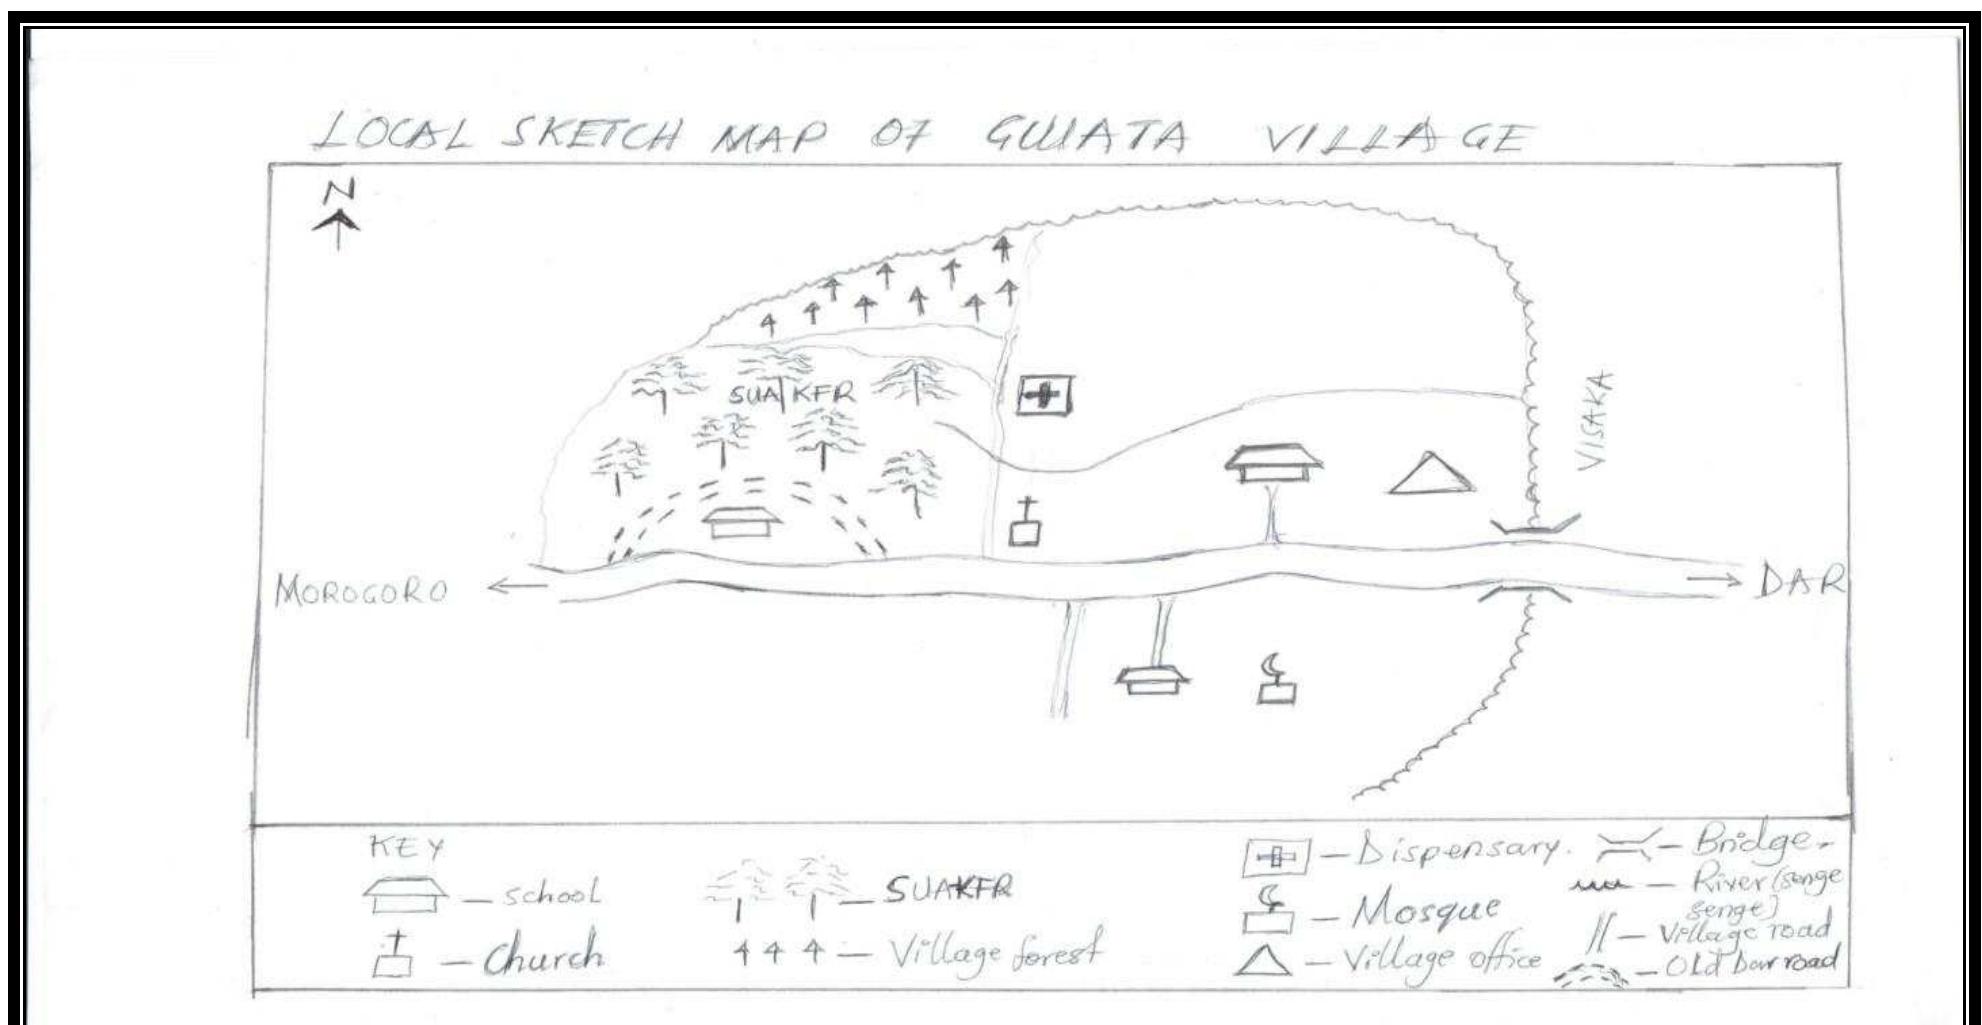 LOCAL SKETCH MAP OF GWATA VILLAGE
N
SUA KFR
VISAKA
MOROGORO
DAR
KEY
School
Church
SUAKFR
Village forest
Dispensary.
Mosque
Village office
Bridge.
River (senge
senge)
Village road
Old Dar road